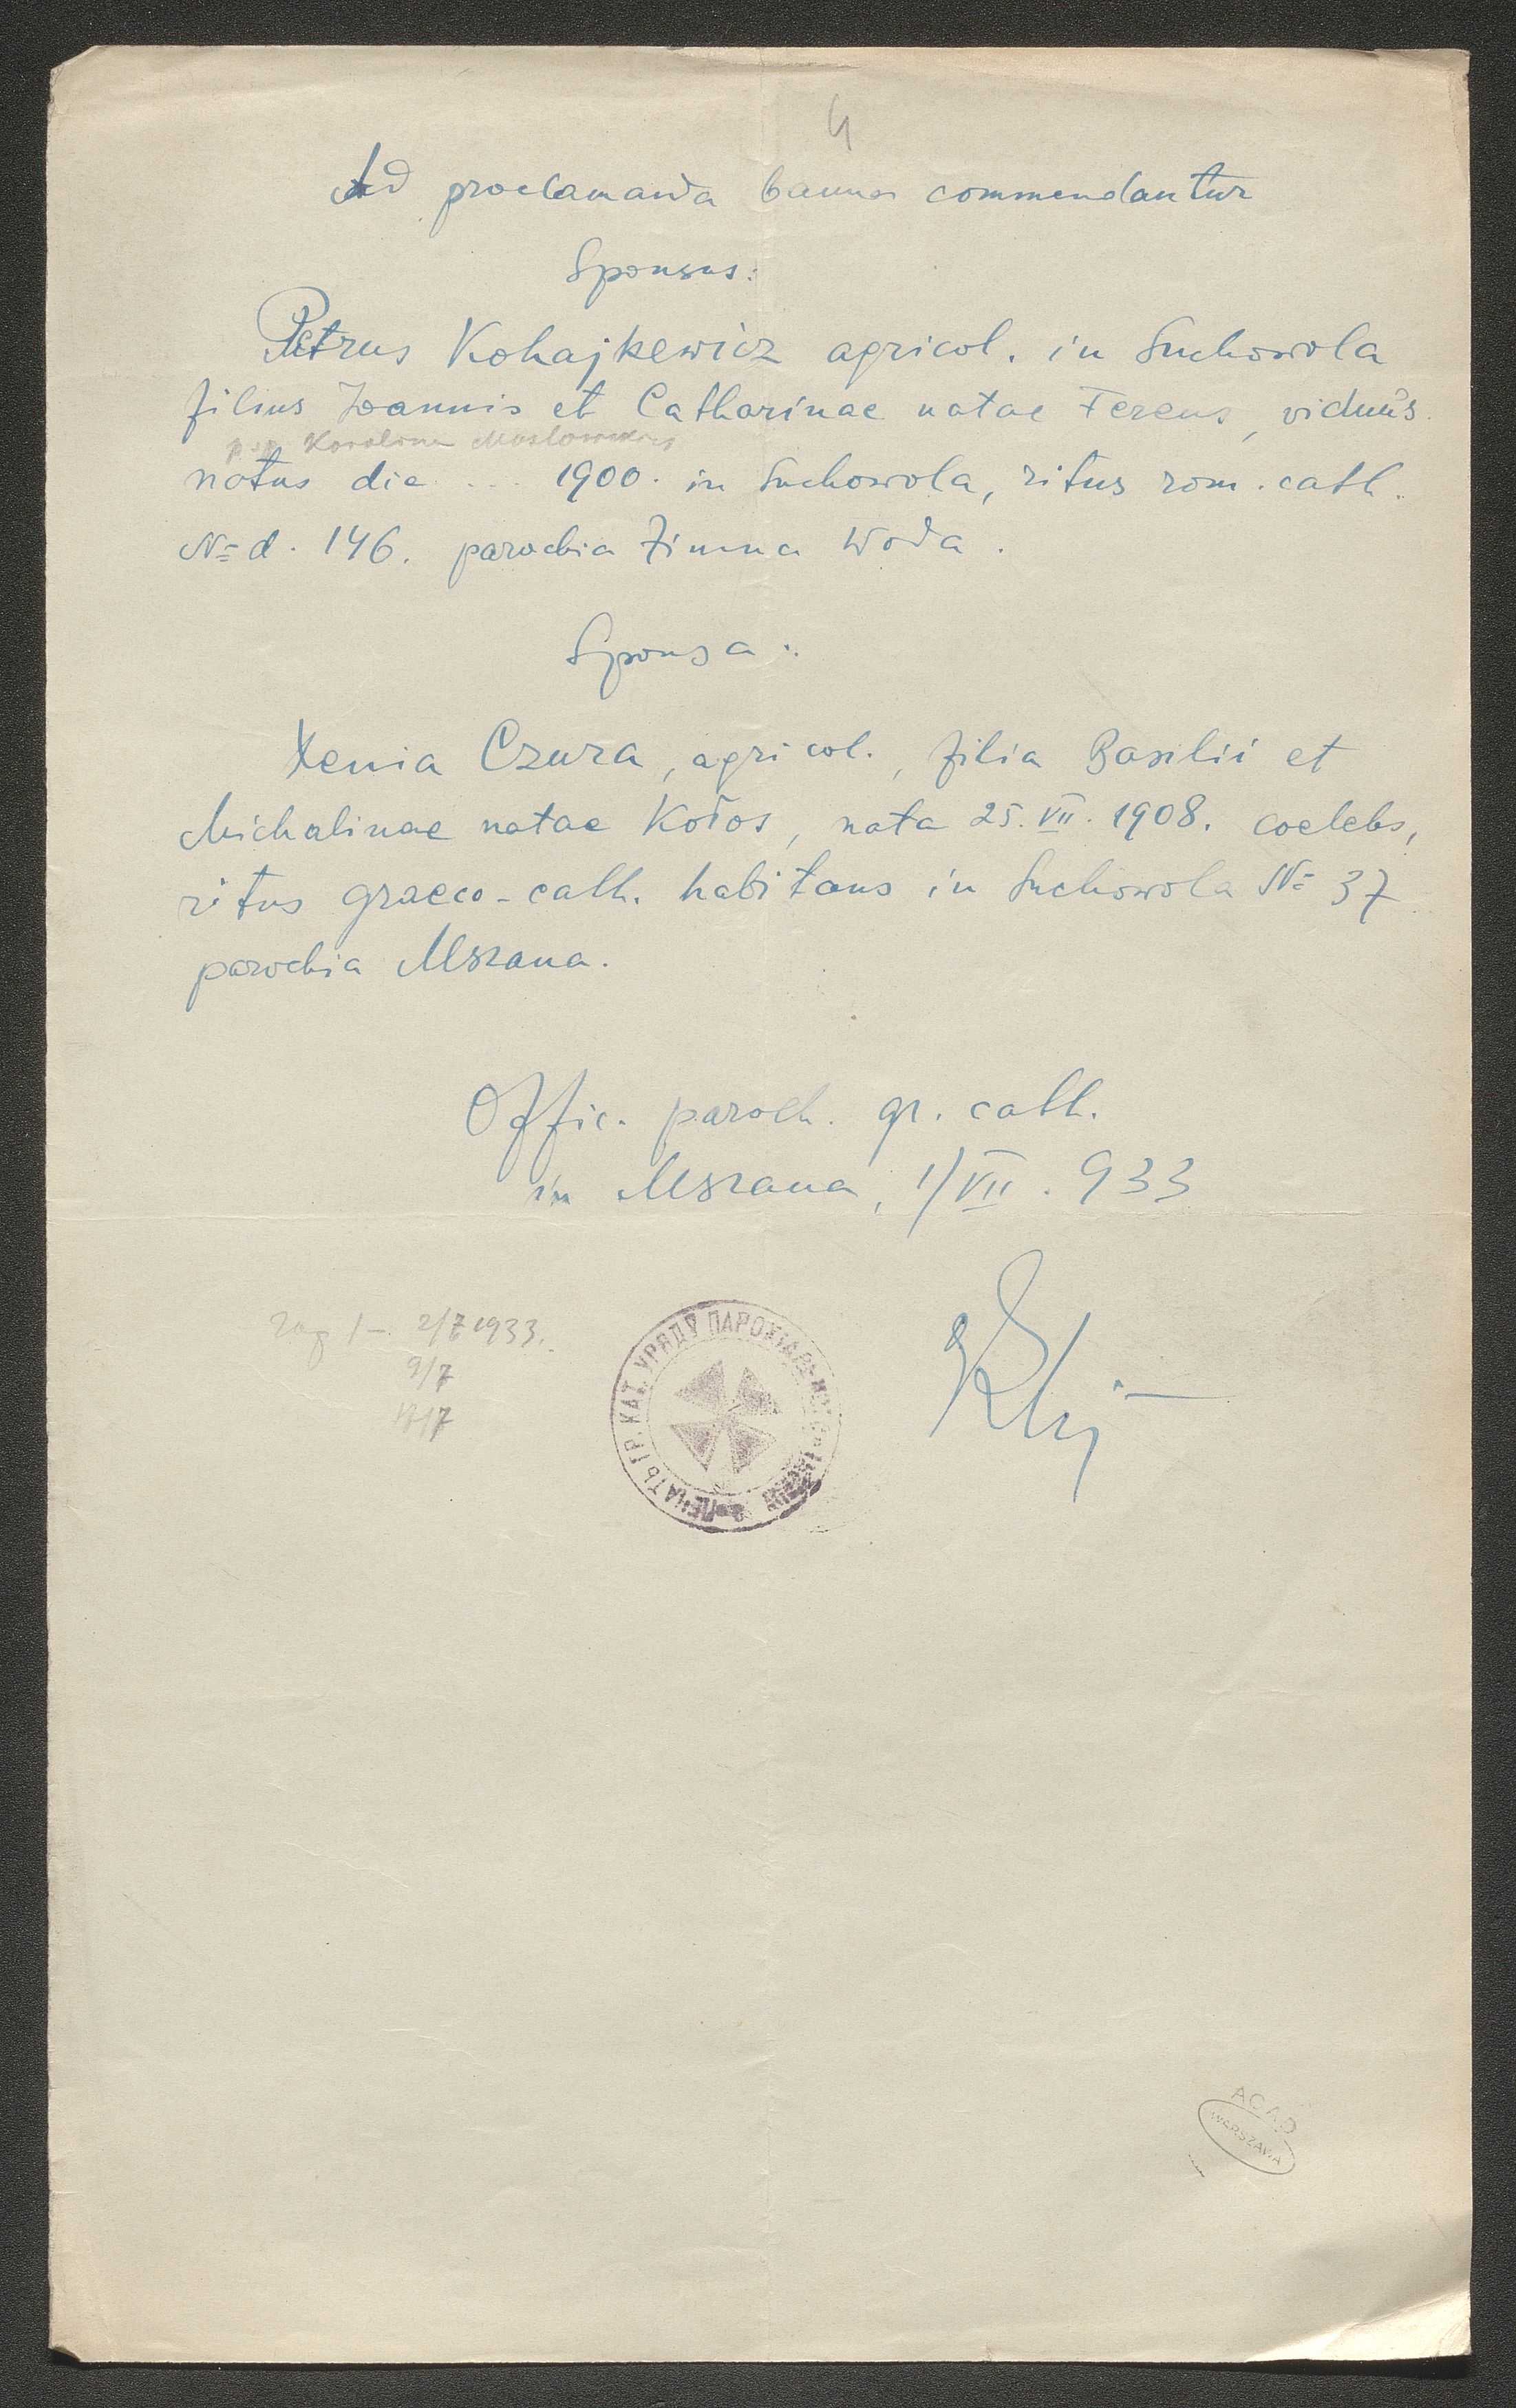 4
Ad proclamanda banna commendantur
Sponsus:
Petrus Kohajkewicz agricol. in Suchowola
filius Joannis et Catharinae natae Ferens, viduus
p. p. Karolina Masłowska
natus die ... 1900. in Suchowola, ritus rom. cath.
No d. 146. parochia Zimna Woda.
Sponsa:
Xenia Czura, agricol., filia Basilii et
Michalinae natae Kołos, nata 25. VII. 1908. coelebs,
ritus graeco-cath. habitans in Suchowola No 37
parochia Mszana.
Offic. paroch. gr. cath.
in Mszana, 1/VII. 933
zap I - 2/7 1933.
9/7
ПЕЧАТЬ ГР. КАТ. УРЯДУ ПАРОХІАЛЬ
AGAD
WARSZAWA